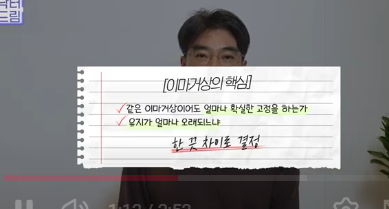 닥터
드림
[이마거상의 핵심]
같은 이마거상이어도 얼마나 확실한 고정을 하는가
유지가 얼마나 오래되느냐
한 끗 차이로 결정